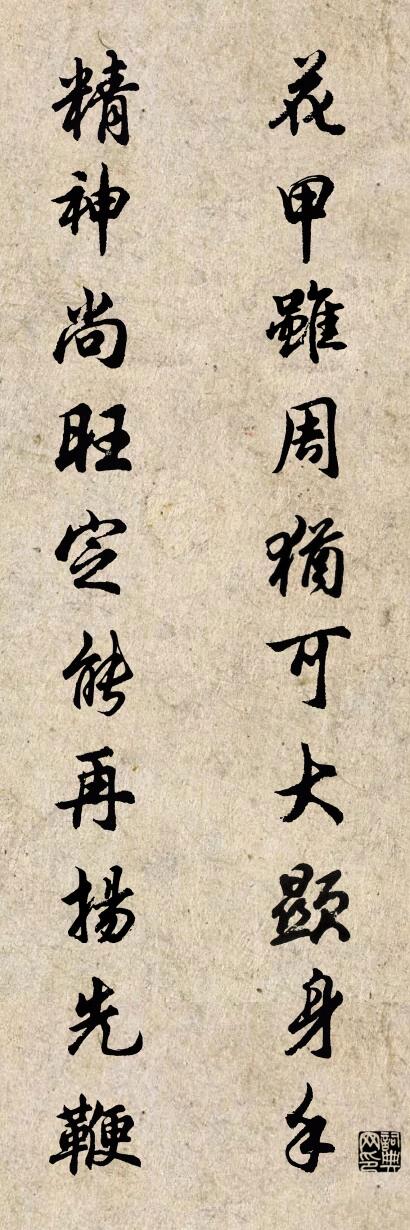 花甲雖周猶可大顯身手
精神尚旺定能再揚先鞭
詞典網印